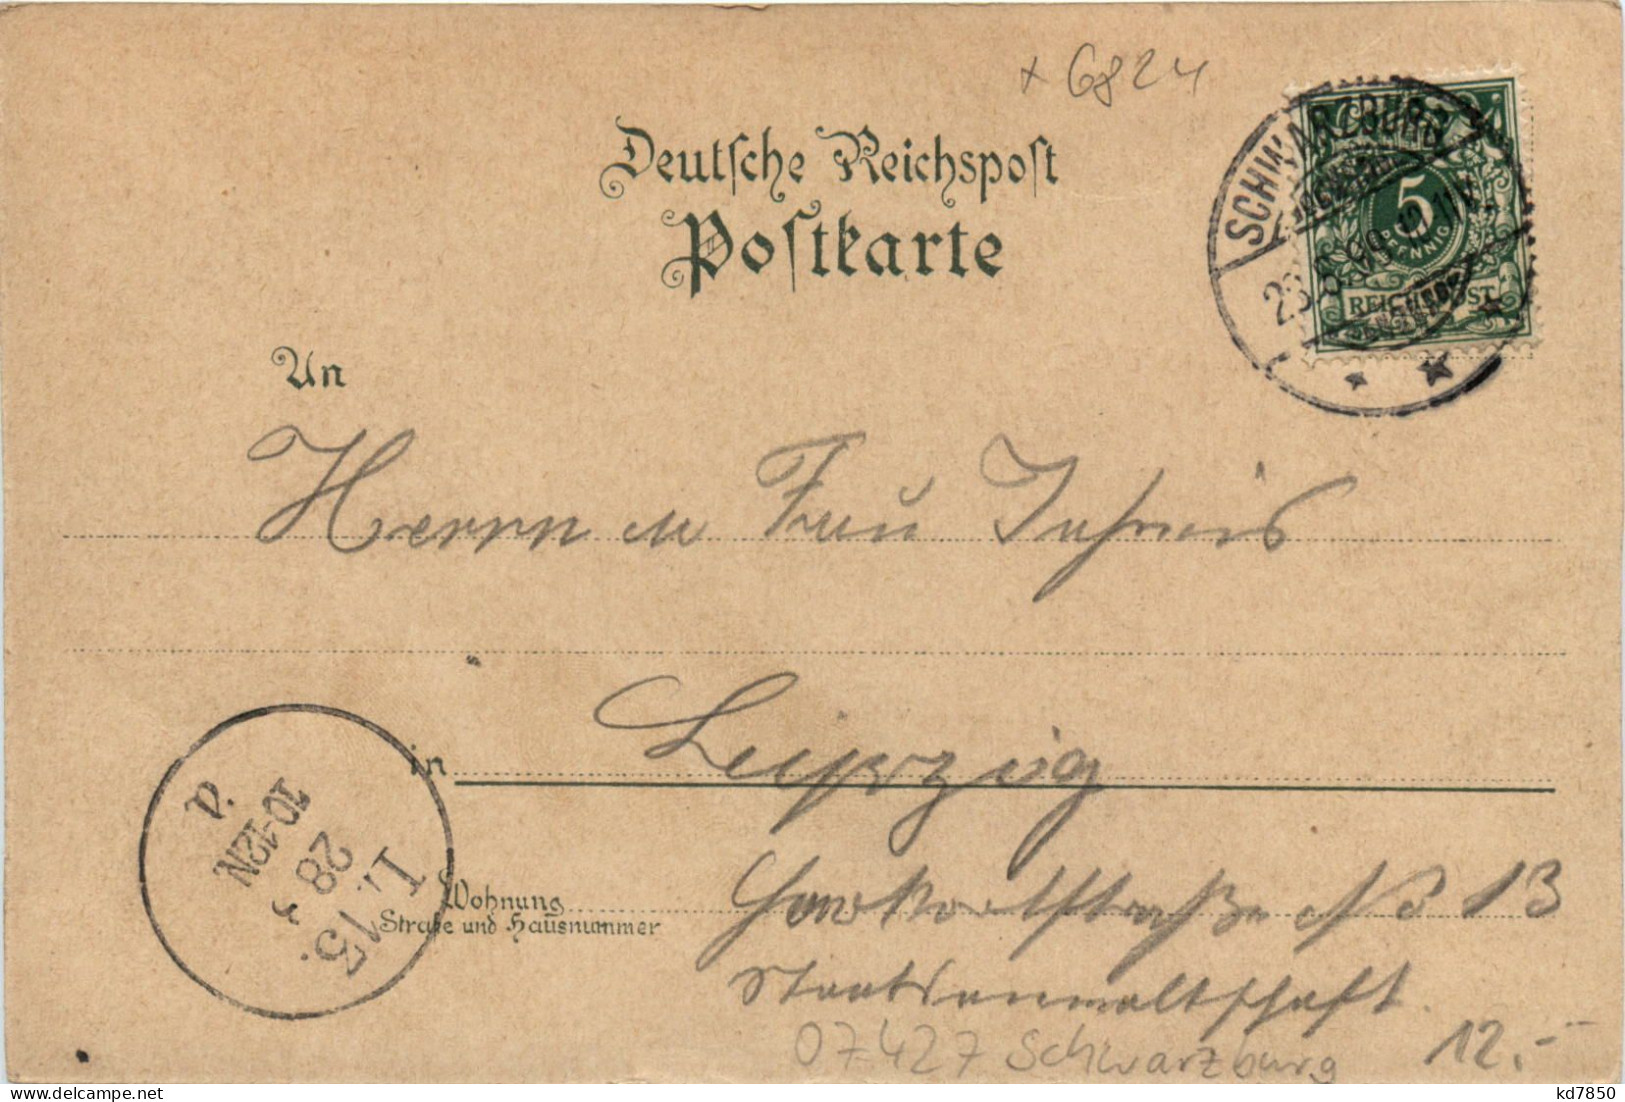 + 6824
Deutsche Reichspost
Postkarte
SCHWARZBURG
5
PFENNIG
REICHSPOST
An
Herrn u Frau
in Leipzig
L. 15.
28
10-12N
Wohnung
Straße und Hausnummer
No 13
Staatsanwaltschaft.
07427 Schwarzburg
12.-
kd7850